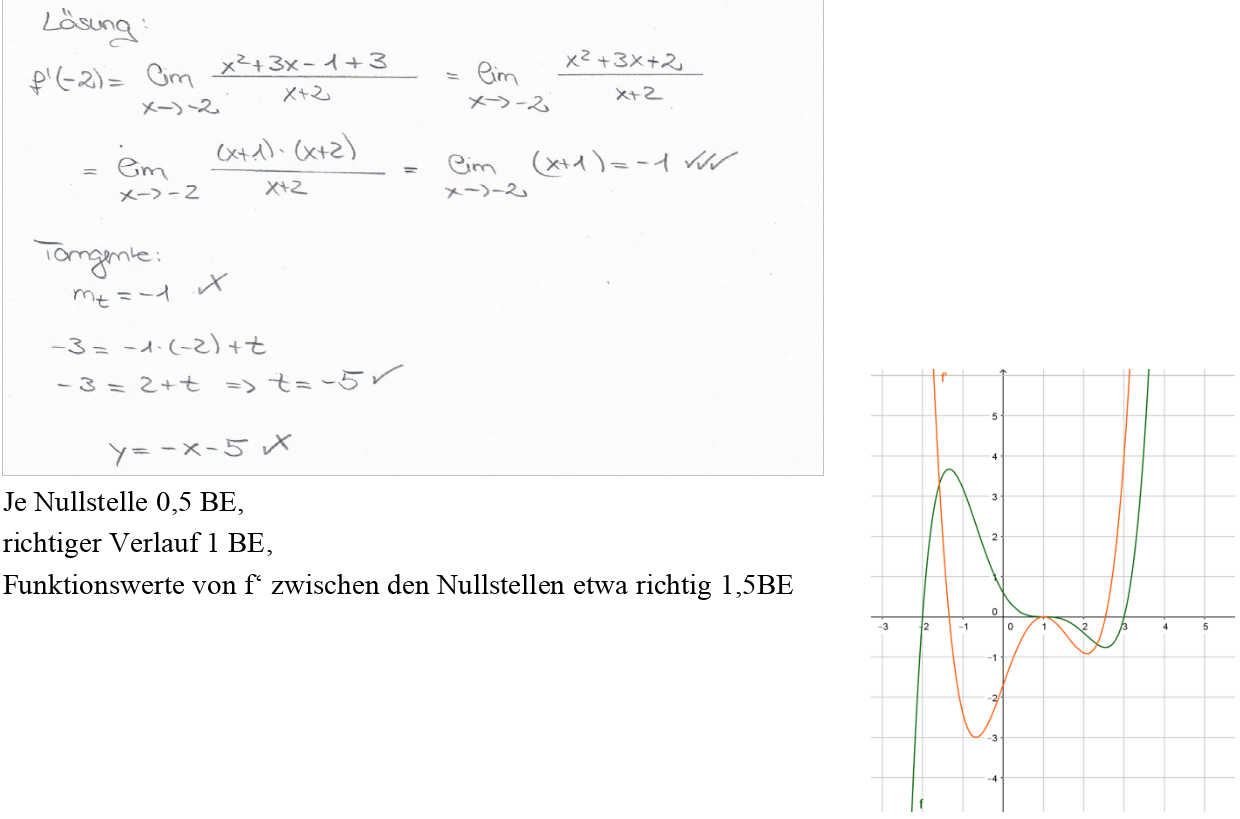 Lösung:
f'(-2) = lim x→-2 (x²+3x-1+3)/(x+2) = lim x→-2 (x²+3x+2)/(x+2)
= lim x→-2 ((x+1)·(x+2))/(x+2) = lim x→-2 (x+1) = -1 ✓✓✓
Tangente:
m_t = -1 ✓
-3 = -1·(-2)+t
-3 = 2+t => t = -5 ✓
y = -x-5 ✓
Je Nullstelle 0,5 BE,
richtiger Verlauf 1 BE,
Funktionswerte von f‘ zwischen den Nullstellen etwa richtig 1,5BE
f'
5
4
3
2
1
0
-3 -2 -1 0 1 2 3 4 5
-1
-2
-3
-4
f